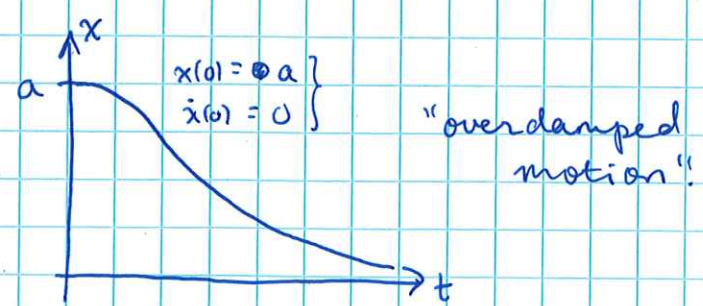 x
a
x(0) = a
ẋ(0) = 0
"overdamped
motion".
t